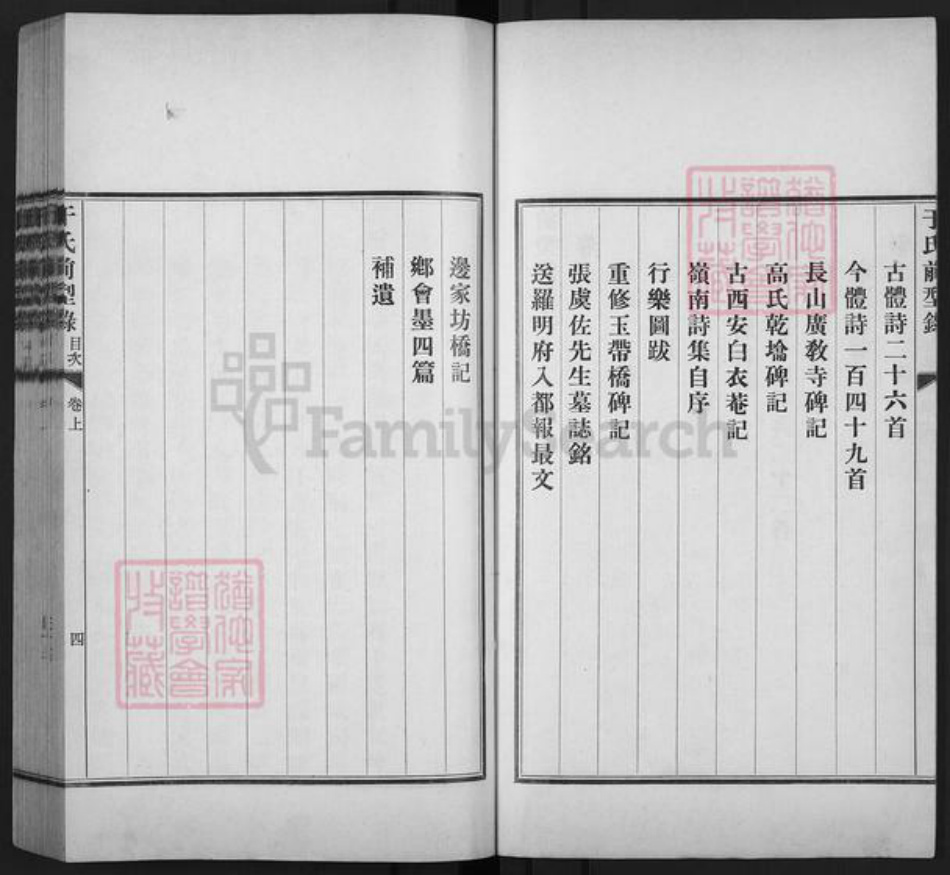 于氏前型錄
古體詩二十六首
今體詩一百四十九首
長山廣敎寺碑記
高氏乾墖碑記
古西安白衣菴記
嶺南詩集自序
行樂圖跋
重修玉帶橋碑記
張虞佐先生墓誌銘
送羅明府入都報最文
邊家坊橋記
鄕會墨四篇
補遺
于氏前型錄 目次 卷上 四
FamilySearch